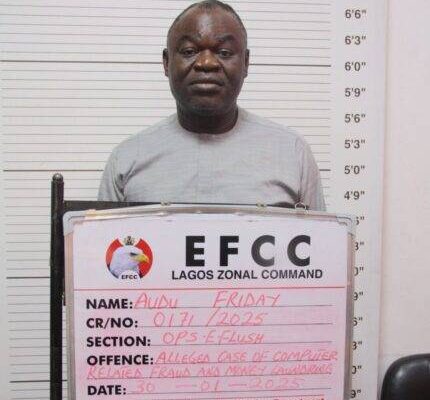 6'6"
6'3"
6'0"
5'9"
5'6"
5'3"
5'0"
4'9"
EFCC
EFCC
LAGOS ZONAL COMMAND
NAME: AUDU FRIDAY
CR/NO: 0171/2025
SECTION: OPS-E-FLUSH
OFFENCE: ALLEGED CASE OF COMPUTER
RELATED FRAUD AND MONEY LAUNDRING
DATE: 30-01-2025